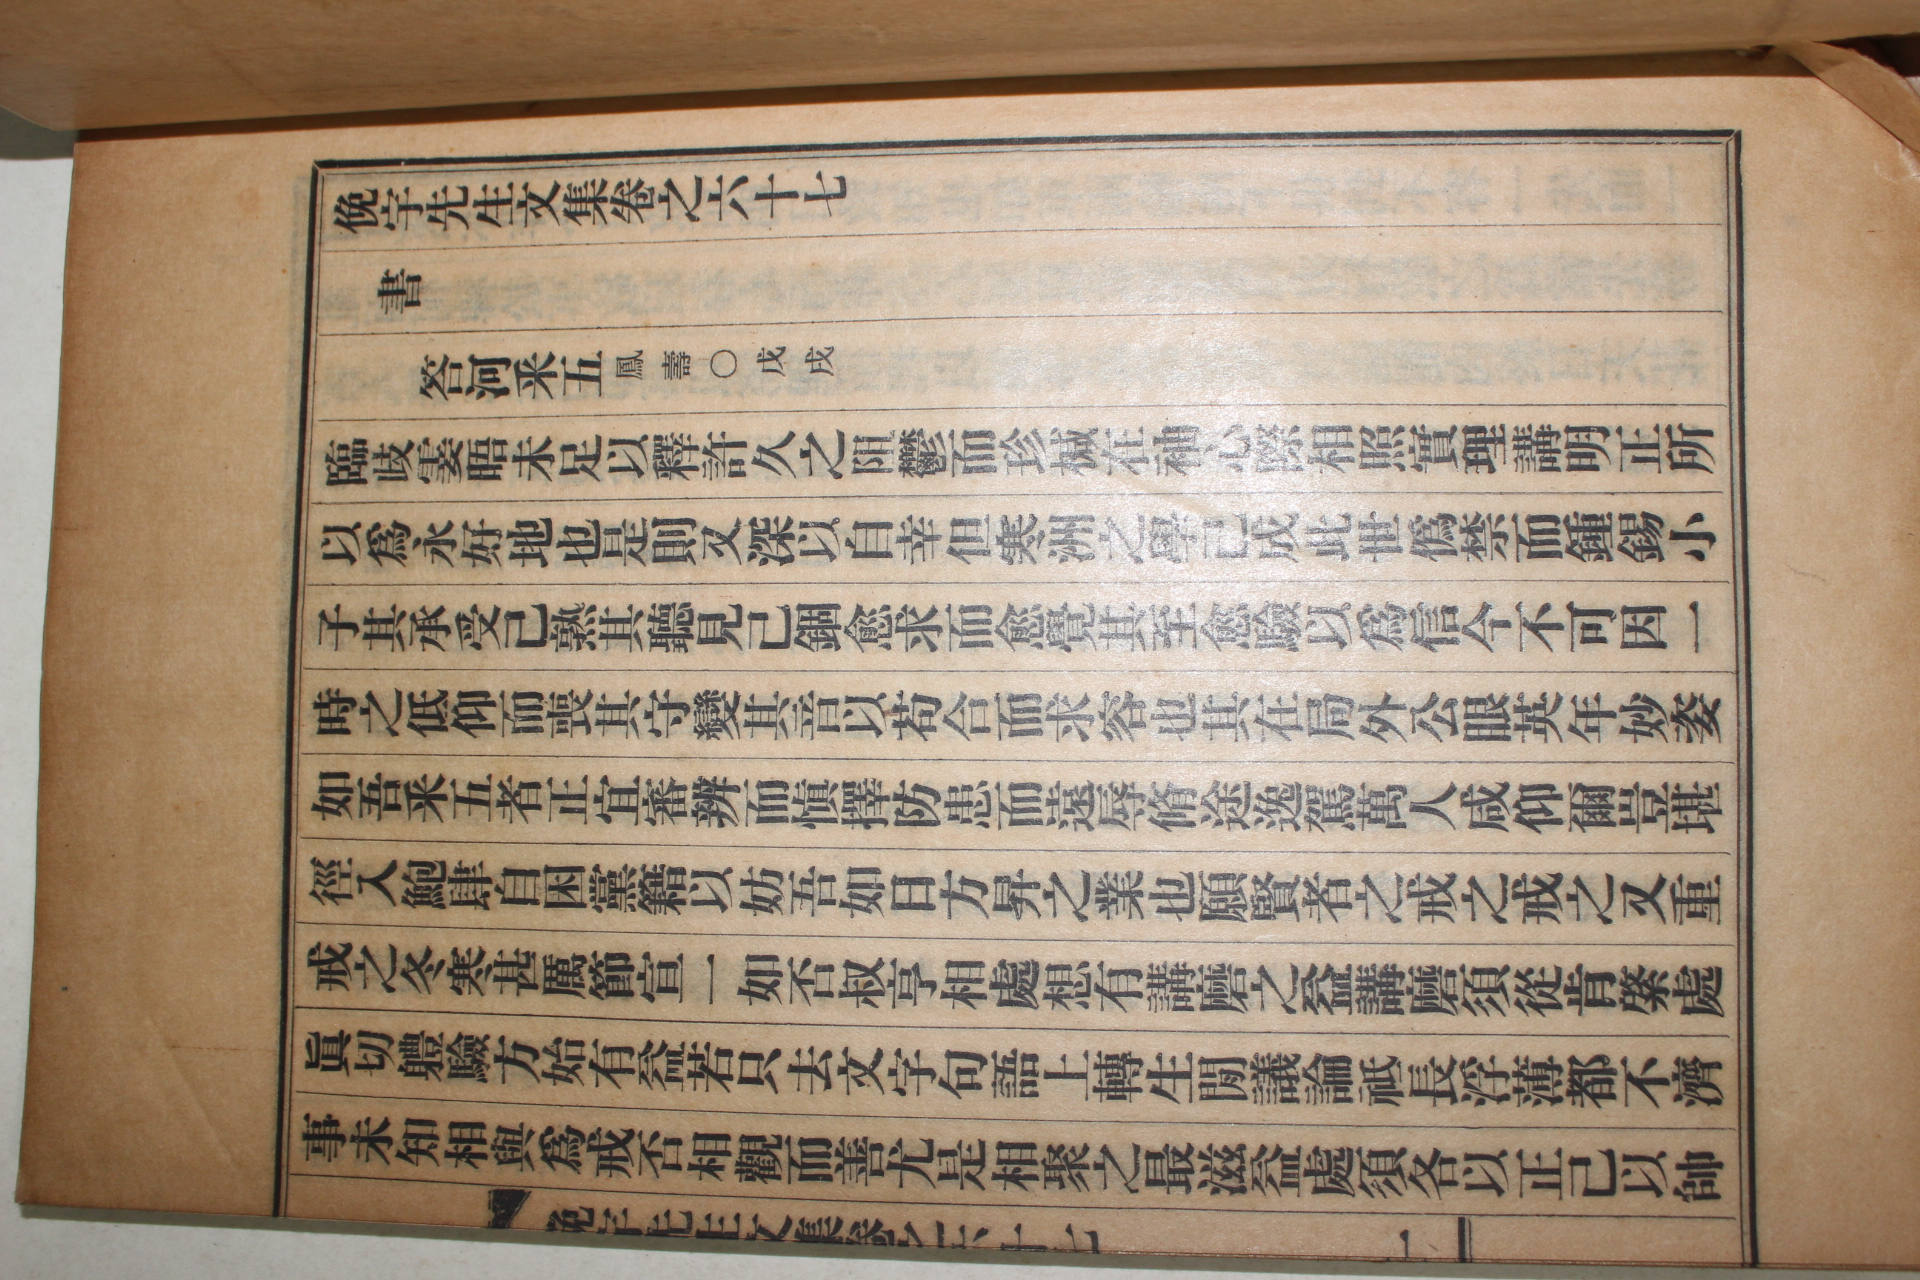 俛宇先生文集卷之六十七
書
答河采五鳳壽○戊戌
臨歧霎晤未足以釋許久之阻鬱而珍槭在袖心際相照實理講明正所
以爲永好地也是則又深以自幸但寒洲之學己成此世僞禁而鍾錫小
子其承受己熟其聽見己錮愈求而愈覺其至愈驗以爲信今不可因一
時之低仰而喪其守變其音以苟合而求容也其在局外公眼英年妙姿
如吾采五者正宜審辨而愼擇防患而遠辱脩途逸駕萬人咸仰爾豈堪
徑入鮑肆自困黨籍以妨吾如日方昇之業也願賢者之戒之戒之又重
戒之冬寒甚厲節宣一如否叔亨相處想有講磨之益講磨須從肯綮處
眞切軆驗方始有益若只去文字句語上轉生閒議論祗長浮薄都不濟
事未知相與爲戒否相觀而善尤是相聚之最滋益處須各以正己以帥
俛宇先生文集卷之六十七 一